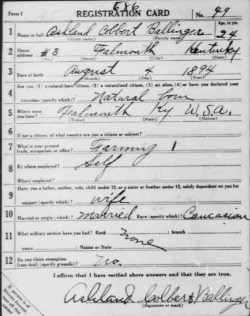 Form 1
REGISTRATION CARD
No. 49
1 Name in full Ashland Colbert Ballinger
Age, in yrs. 24
2 Home address #3 Falmouth Kentucky
3 Date of birth August 4 1894
4 Are you (1) a natural-born citizen, (2) a naturalized citizen, (3) an alien, (4) or have you declared your
intention (specify which)? Natural born
5 Where were you born? Falmouth Ky U.S.A.
6 If not a citizen, of what country are you a citizen or subject?
7 What is your present trade, occupation, or office? Farming 1
8 By whom employed? Self
9 Have you a father, mother, wife, child under 12, or a sister or brother under 12, solely dependent on you for
support (specify which)? wife
10 Married or single (which)? Married Race (specify which)? Caucasian
11 What military service have you had? Rank None branch
years Nation or State
12 Do you claim exemption from draft (specify grounds)? No.
I affirm that I have verified above answers and that they are true.
Ashland Colbert Ballinger
(Signature or mark)